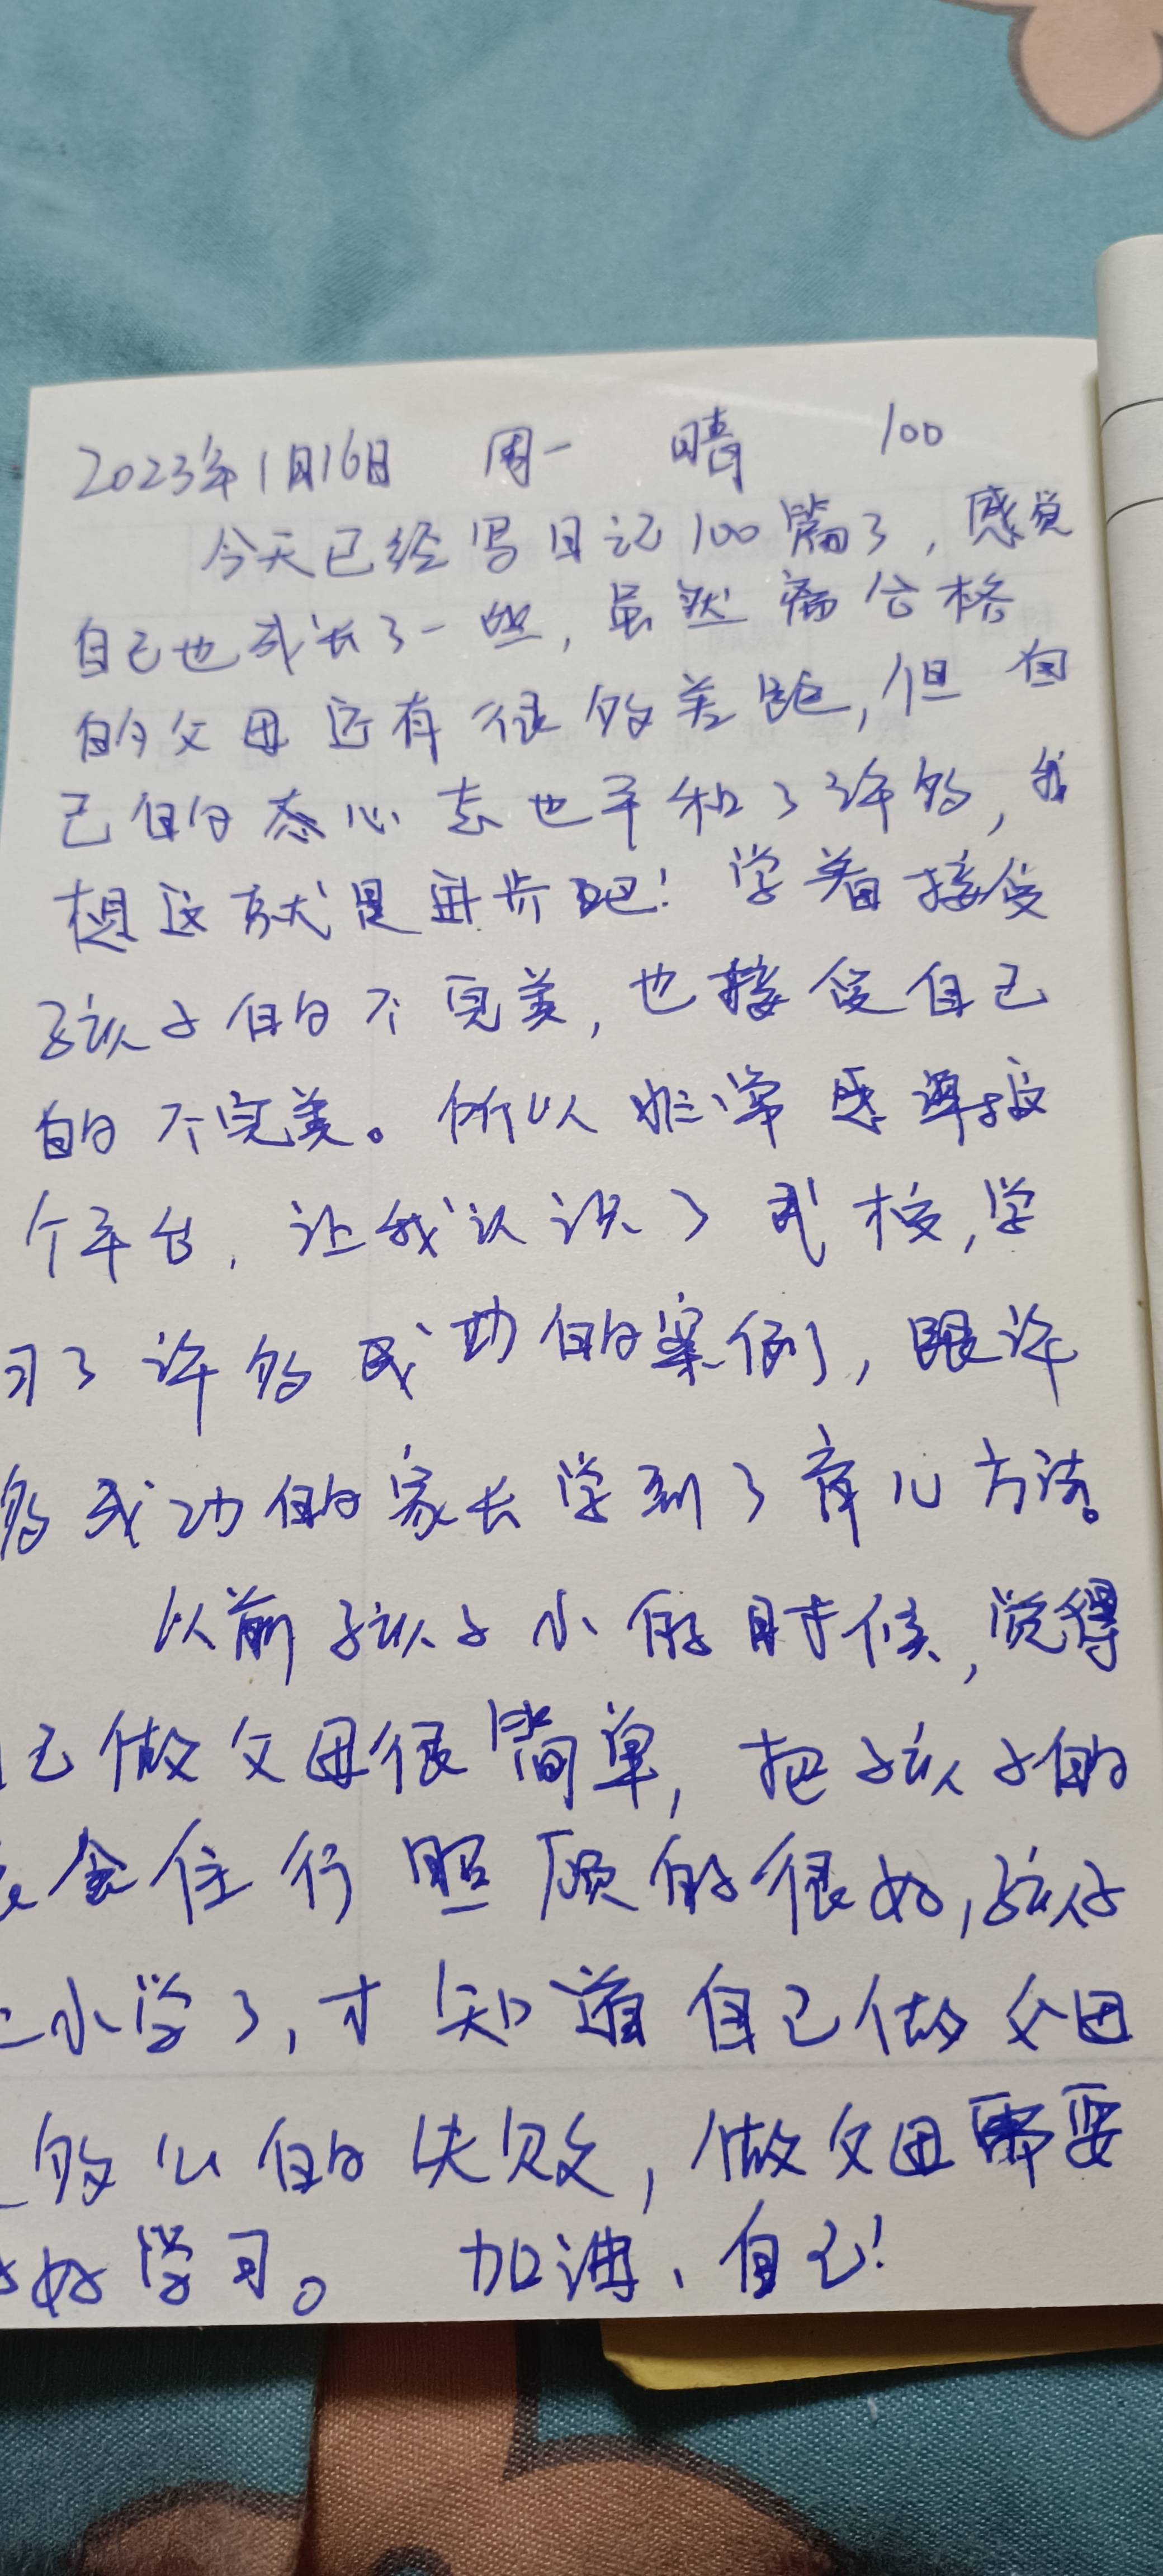 2023年1月16日 周一 晴 100
今天已经写日记100篇了,感觉
自己也成长了一些,虽然离合格
的父母还有很多差距,但自
己的态心态也平和了许多,我
想这就是进步吧!学着接受
孩子的不完美,也接受自己
的不完美。所以非常感谢这
个平台,让我认识了武校,学
习了许多成功的案例,跟许
多成功的家长学到了育儿方法。
以前孩子小的时候,觉得
己做父母很简单,把孩子的
食住行照顾的很好,孩子
小学了,才知道自己做父母
多么的失败,做父母需要
好学习。 加油、自己!